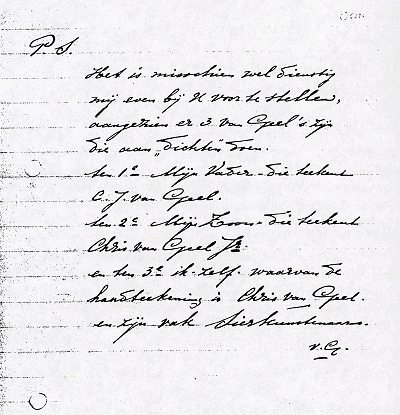 P.S.
Het is misschien wel dienstig
mij even bij U voor te stellen,
aangezien er 3 van Geel's zijn
die aan "dichten" doen.
ten 1e Mijn Vader - die teekent
C. J. van Geel.
ten 2e Mijn Zoon - die teekent
Chris van Geel Jr.
en ten 3e ik-zelf. waarvan de
handteekening is Chris van Geel.
en zijn vak Sierkunstenaar.
v. G.